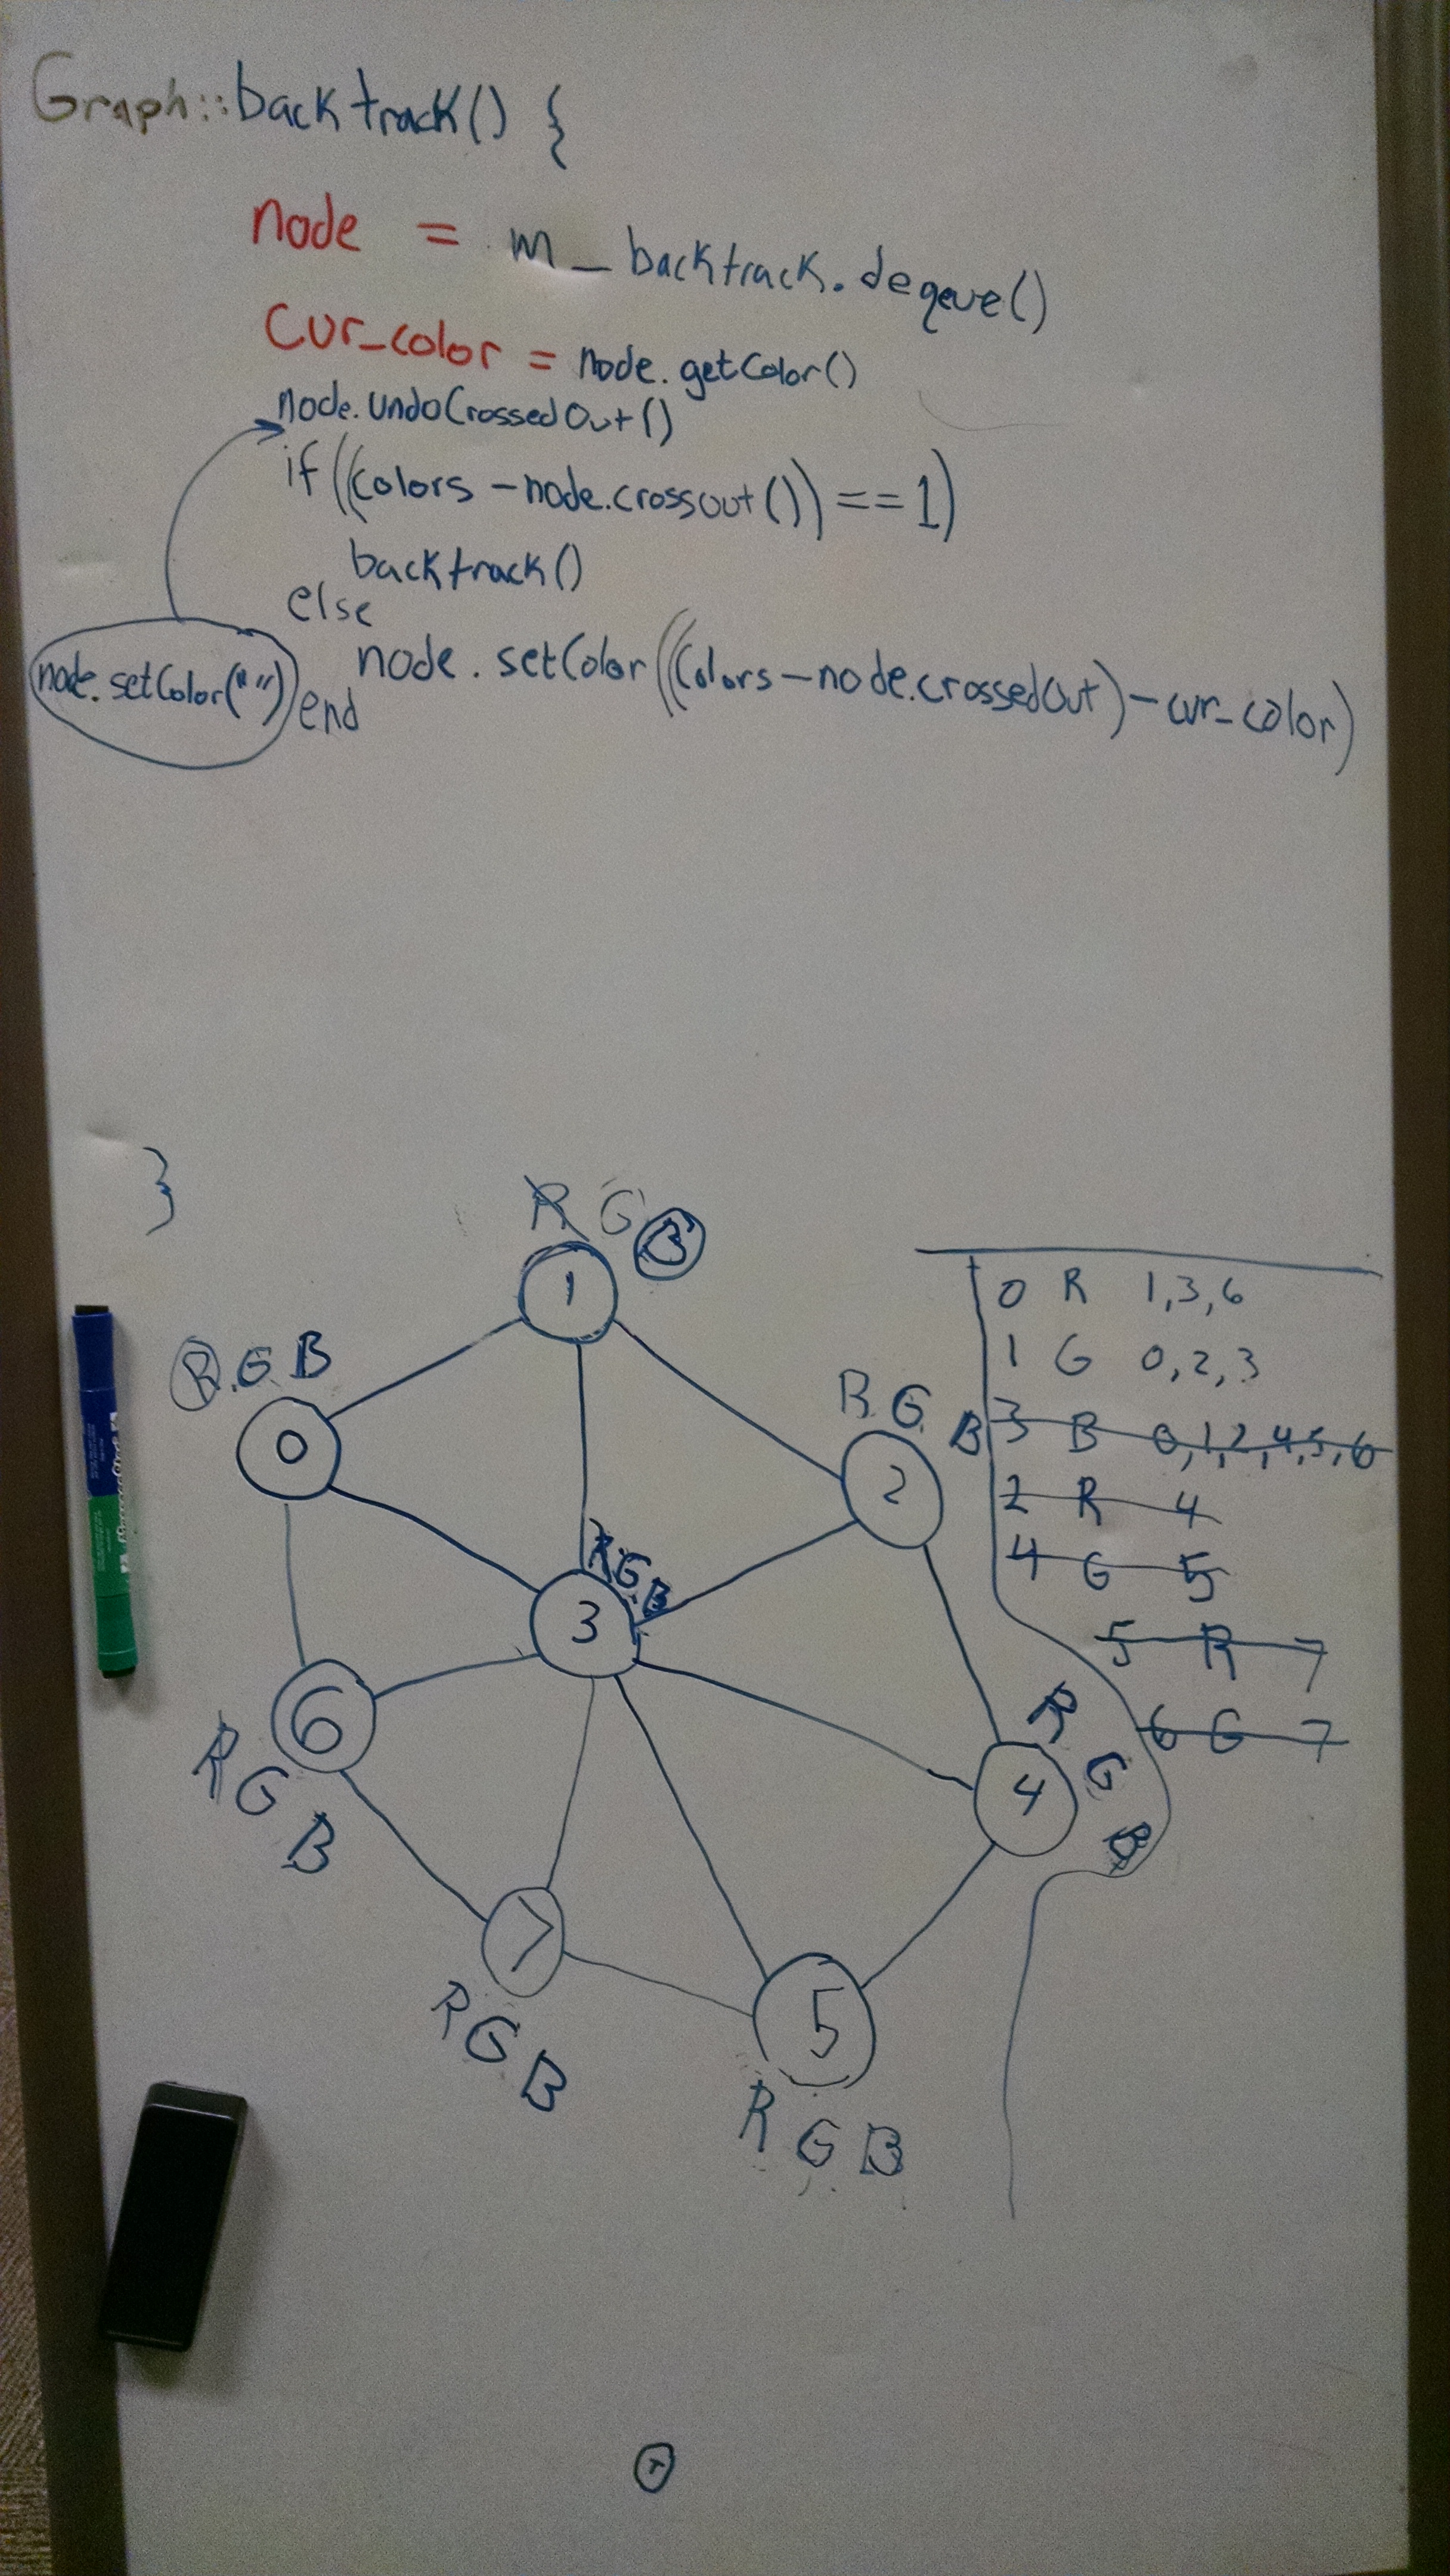 Graph::backtrack() {
node = m_backtrack.deqeue()
cur_color = node.getColor()
node.undoCrossedOut()
if ((colors - node.crossout()) == 1)
backtrack()
else
node.setColor((Colors - node.crossedOut) - cur_color)
node.setColor("")
end
}
R G B
1
R G B
0
R G B
2
R G B
3
R G B
6
R G B
4
7
R G B
5
R G B
0 R 1,3,6
1 G 0,2,3
3 B 0,1,2,4,5,6
2 R 4
4 G 5
5 R 7
6 G 7